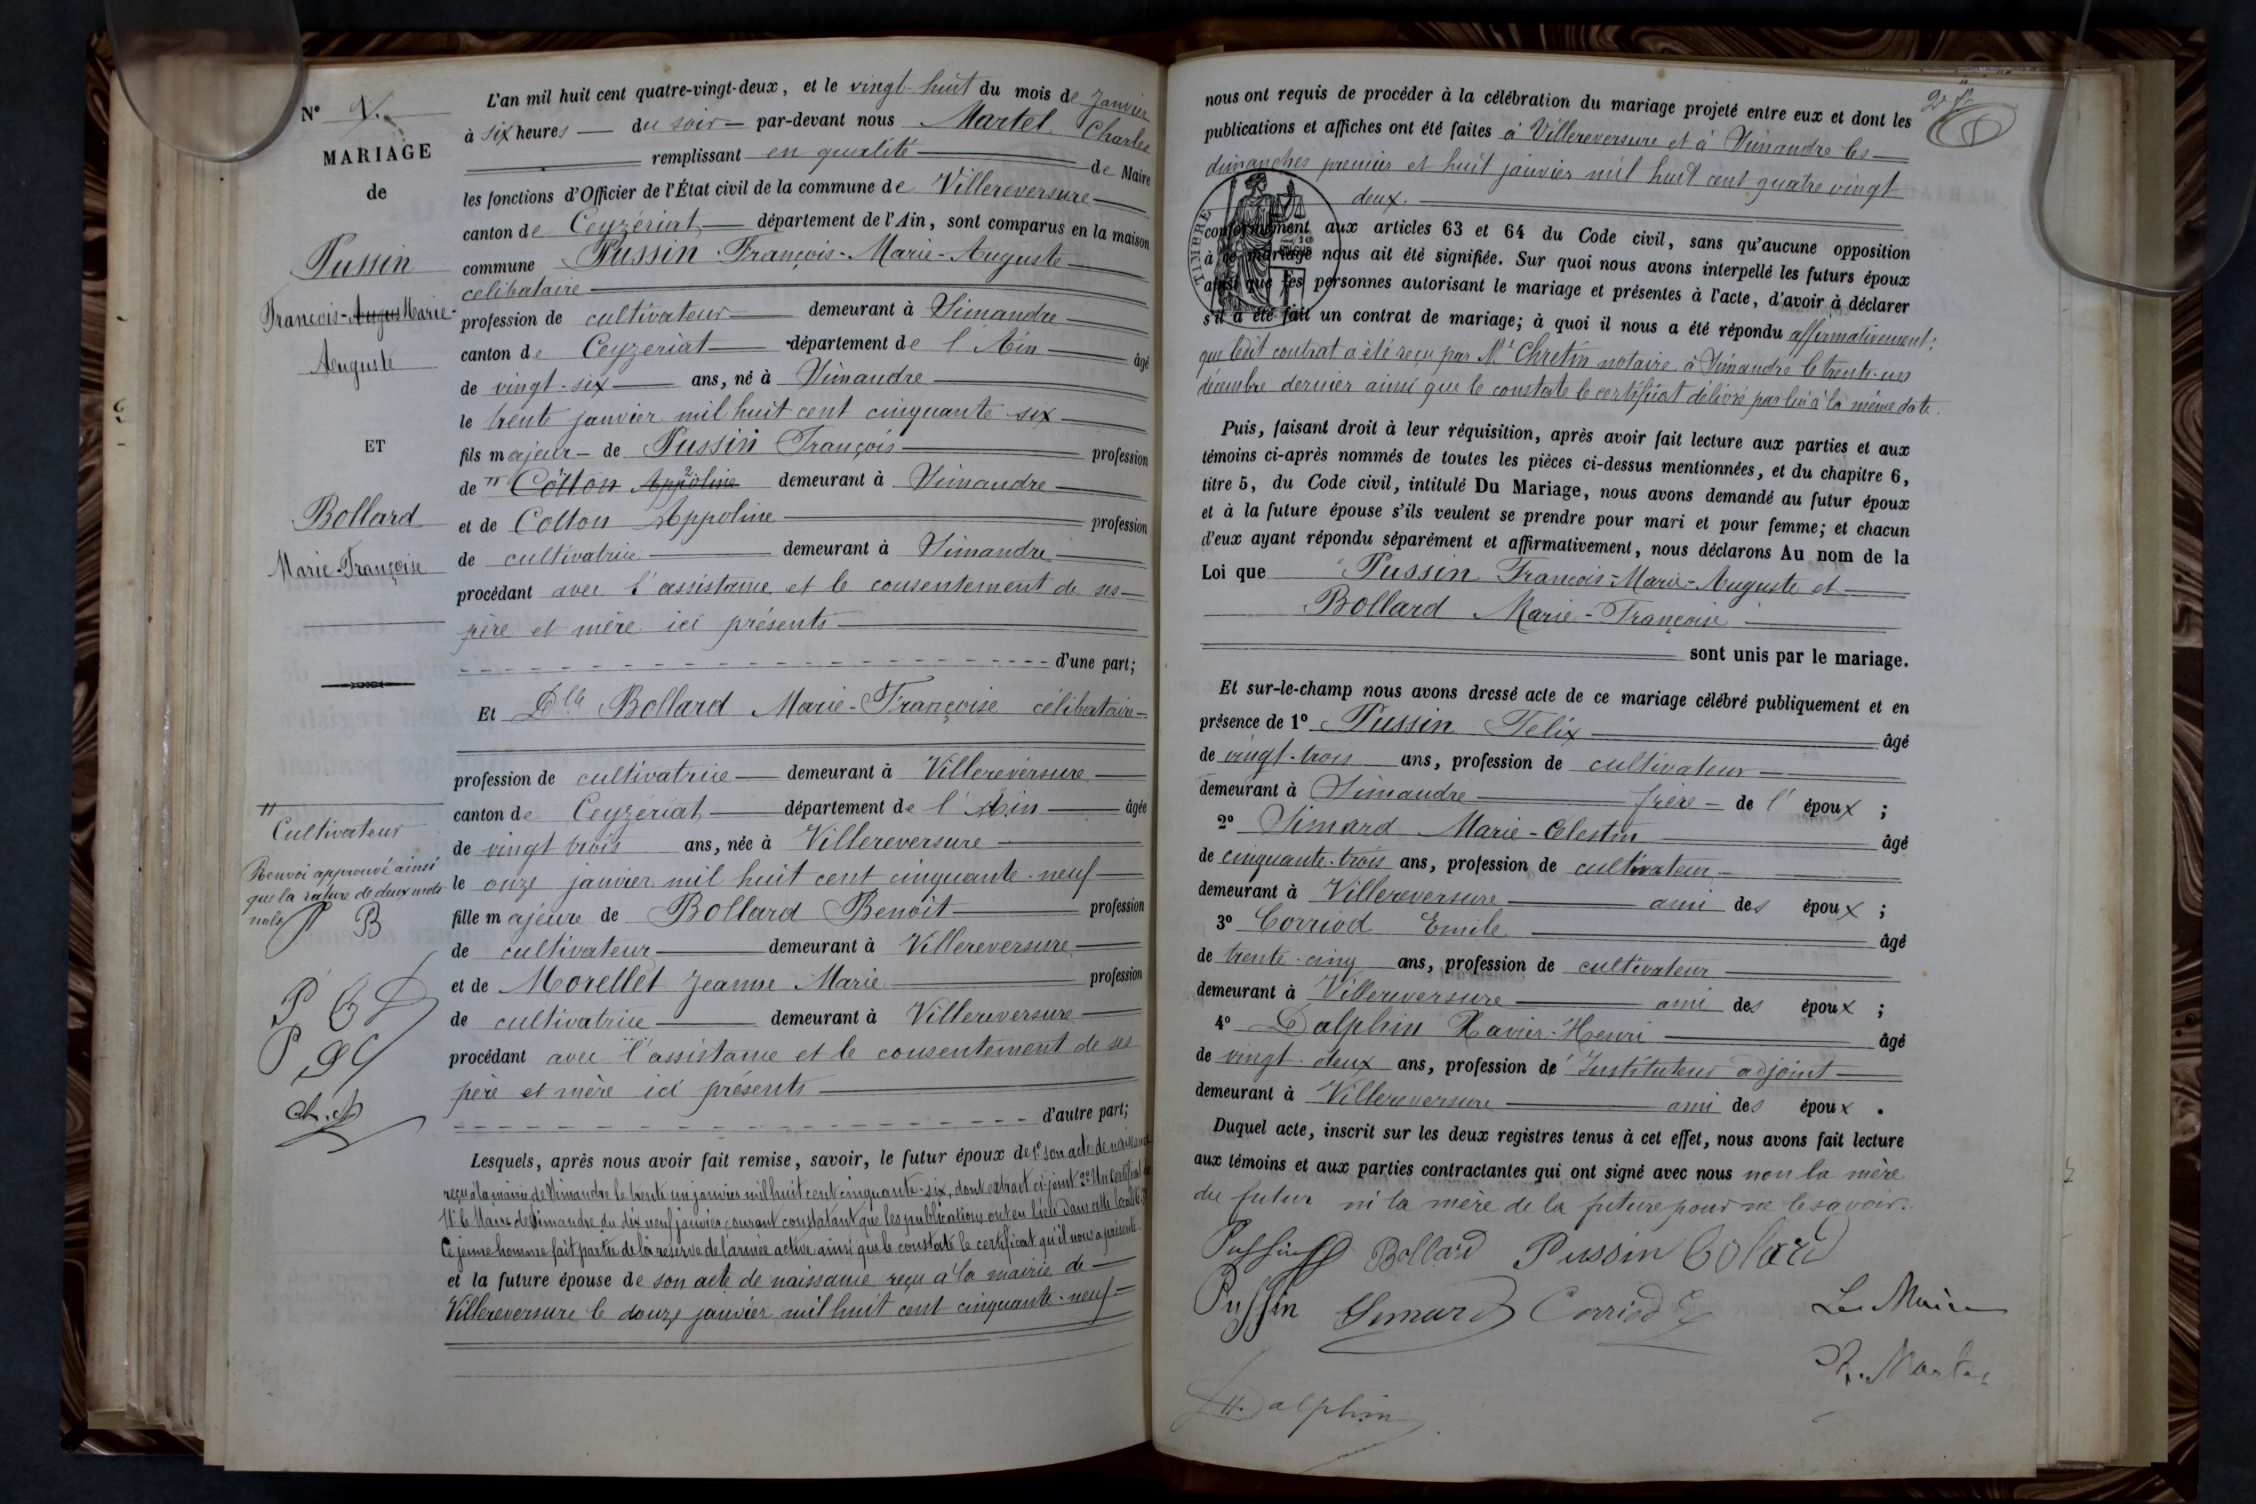 N° 1.
MARIAGE
de
Pussin
François-Augus Marie-
Auguste
ET
Bollard
Marie-Françoise
"
Cultivateur
Renvoi approuvé ainsi
que la rature de deux mots
nuls P B
L'an mil huit cent quatre-vingt-deux, et le vingt-huit du mois de Janvier
à six heures du soir par-devant nous Martel Charles
remplissant en qualité de Maire
les fonctions d'Officier de l'État civil de la commune de Villereversure
canton de Ceyzériat département de l'Ain, sont comparus en la maison
commune Pussin François-Marie-Auguste
célibataire
profession de cultivateur demeurant à Simandre
canton de Ceyzeriat département de l'Ain âgé
de vingt-six ans, né à Simandre
le trente janvier mil huit cent cinquante-six
fils majeur de Pussin François profession
de " Cotton Appoline demeurant à Simandre
et de Cotton Appoline profession
de cultivatrice demeurant à Simandre
procédant avec l'assistance et le consentement de ses
père et mère ici présents
d'une part;
Et Dlle Bollard Marie-Françoise célibataire
profession de cultivatrice demeurant à Villereversure
canton de Ceyzériat département de l'Ain âgée
de vingt trois ans, née à Villereversure
le onze janvier mil huit cent cinquante-neuf
fille majeure de Bollard Benoit profession
de cultivateur demeurant à Villereversure
et de Morellet Jeanne Marie profession
de cultivatrice demeurant à Villereversure
procédant avec l'assistance et le consentement de ses
père et mère ici présents
d'autre part;
Lesquels, après nous avoir fait remise, savoir, le futur époux de 1° son acte de naissance
reçu à la mairie de Simandre le trente un janvier mil huit cent cinquante-six, dont extrait ci-joint 2° Un certificat de
Mr le Maire de Simandre du dix neuf janvier courant constatant que les publications ont eu lieu dans cette localité 3°
Ce jeune homme fait partie de la réserve de l'armée active ainsi que le constate le certificat qu'il nous a présenté
et la future épouse de son acte de naissance reçu à la mairie de
Villereversure le douze janvier mil huit cent cinquante-neuf
nous ont requis de procéder à la célébration du mariage projeté entre eux et dont les
publications et affiches ont été faites à Villereversure et à Simandre les
dimanches premier et huit janvier mil huit cent quatre vingt
deux.
TIMBRE
conformément aux articles 63 et 64 du Code civil, sans qu'aucune opposition
à ce mariage nous ait été signifiée. Sur quoi nous avons interpellé les futurs époux
ainsi que les personnes autorisant le mariage et présentes à l'acte, d'avoir à déclarer
s'il a été fait un contrat de mariage; à quoi il nous a été répondu affirmativement:
que ledit contrat a été reçu par Mt Chretin notaire à Simandre le trente-un
décembre dernier ainsi que le constate le certificat délivré par lui à la même date.
Puis, faisant droit à leur réquisition, après avoir fait lecture aux parties et aux
témoins ci-après nommés de toutes les pièces ci-dessus mentionnées, et du chapitre 6,
titre 5, du Code civil, intitulé Du Mariage, nous avons demandé au futur époux
et à la future épouse s'ils veulent se prendre pour mari et pour femme; et chacun
d'eux ayant répondu séparément et affirmativement, nous déclarons Au nom de la
Loi que Pussin François-Marie-Auguste et
Bollard Marie-Françoise
sont unis par le mariage.
Et sur-le-champ nous avons dressé acte de ce mariage célébré publiquement et en
présence de 1° Pussin Felix âgé
de vingt-trois ans, profession de cultivateur
demeurant à Simandre frère de l'époux;
2° Simard Marie-Celestin âgé
de cinquante-trois ans, profession de cultivateur
demeurant à Villereversure ami des époux;
3° Corriod Emile âgé
de trente-cinq ans, profession de cultivateur
demeurant à Villereversure ami des époux;
4° Dalphin Xavier-Henri âgé
de vingt-deux ans, profession de Instituteur adjoint
demeurant à Villereversure ami des époux.
Duquel acte, inscrit sur les deux registres tenus à cet effet, nous avons fait lecture
aux témoins et aux parties contractantes qui ont signé avec nous non la mère
du futur ni la mère de la future pour ne le savoir.
Pussin Bollard Pussin Bolard
Pussin Simard Corriod E Le Maire
Ch. Martel
H. Dalphin